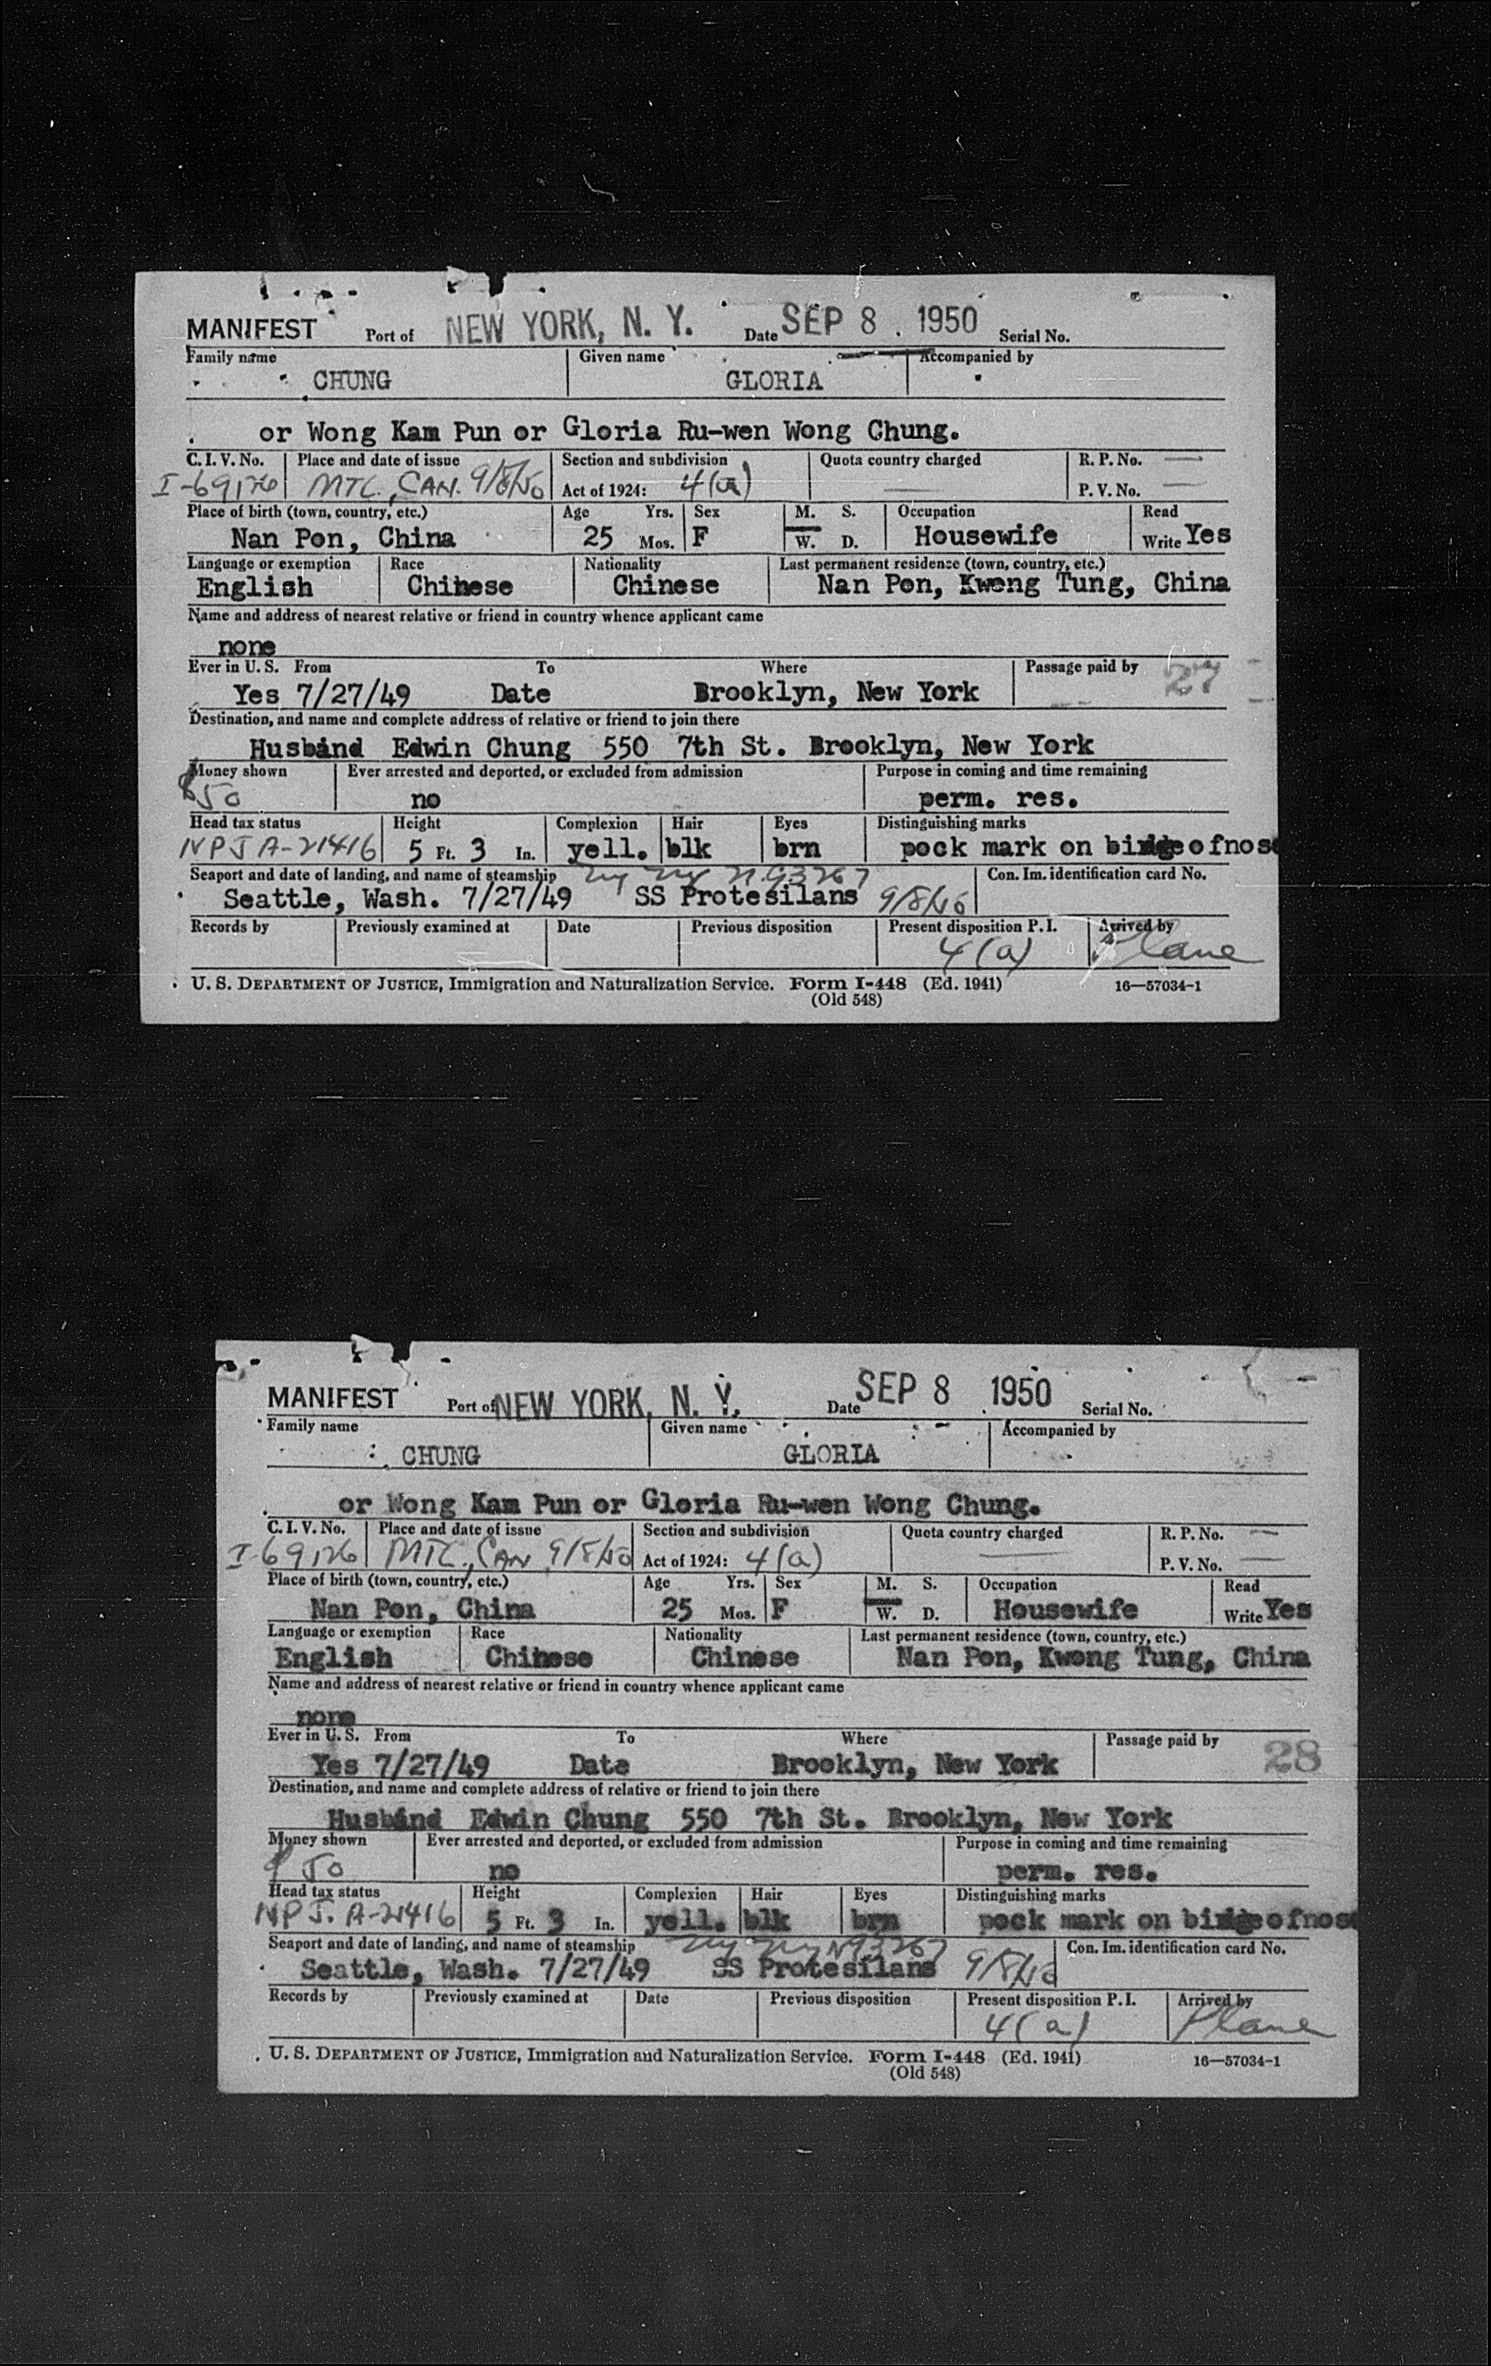 MANIFEST Port of NEW YORK, N. Y. Date SEP 8 . 1950 Serial No.
Family name Given name Accompanied by
CHUNG GLORIA
or Wong Kam Pun or Gloria Ru-wen Wong Chung.
C. I. V. No. Place and date of issue Section and subdivision Quota country charged R. P. No. —
I-69126 MTL., CAN. 9/8/50 Act of 1924: 4(a) — P. V. No. —
Place of birth (town, country, etc.) Age Yrs. Sex M. S. Occupation Read
Nan Pon, China 25 Mos. F W. D. Housewife Write Yes
Language or exemption Race Nationality Last permanent residence (town, country, etc.)
English Chinese Chinese Nan Pon, Kwong Tung, China
Name and address of nearest relative or friend in country whence applicant came
none
Ever in U. S. From To Where Passage paid by 27
Yes 7/27/49 Date Brooklyn, New York
Destination, and name and complete address of relative or friend to join there
Husband Edwin Chung 550 7th St. Brooklyn, New York
Money shown Ever arrested and deported, or excluded from admission Purpose in coming and time remaining
$50 no perm. res.
Head tax status Height Complexion Hair Eyes Distinguishing marks
NPJ A-21416 5 Ft. 3 In. yell. blk brn pock mark on bridge of nose
Seaport and date of landing, and name of steamship Con. Im. identification card No.
Seattle, Wash. 7/27/49 SS Protesilans 9/8/50
Records by Previously examined at Date Previous disposition Present disposition P. I. Arrived by
4(a) Plane
U. S. DEPARTMENT OF JUSTICE, Immigration and Naturalization Service. Form I-448 (Ed. 1941) 16—57034-1
(Old 548)
MANIFEST Port of NEW YORK, N. Y. Date SEP 8 . 1950 Serial No.
Family name Given name Accompanied by
CHUNG GLORIA
or Wong Kam Pun or Gloria Ru-wen Wong Chung.
C. I. V. No. Place and date of issue Section and subdivision Quota country charged R. P. No. —
I-69126 MTL., CAN 9/8/50 Act of 1924: 4(a) — P. V. No. —
Place of birth (town, country, etc.) Age Yrs. Sex M. S. Occupation Read
Nan Pon, China 25 Mos. F W. D. Housewife Write Yes
Language or exemption Race Nationality Last permanent residence (town, country, etc.)
English Chinese Chinese Nan Pon, Kwong Tung, China
Name and address of nearest relative or friend in country whence applicant came
none
Ever in U. S. From To Where Passage paid by 28
Yes 7/27/49 Date Brooklyn, New York
Destination, and name and complete address of relative or friend to join there
Husband Edwin Chung 550 7th St. Brooklyn, New York
Money shown Ever arrested and deported, or excluded from admission Purpose in coming and time remaining
$50 no perm. res.
Head tax status Height Complexion Hair Eyes Distinguishing marks
NPJ. A-21416 5 Ft. 3 In. yell. blk brn pock mark on bridge of nose
Seaport and date of landing, and name of steamship Con. Im. identification card No.
Seattle, Wash. 7/27/49 SS Protesilans 9/8/50
Records by Previously examined at Date Previous disposition Present disposition P. I. Arrived by
4(a) Plane
U. S. DEPARTMENT OF JUSTICE, Immigration and Naturalization Service. Form I-448 (Ed. 1941) 16—57034-1
(Old 548)